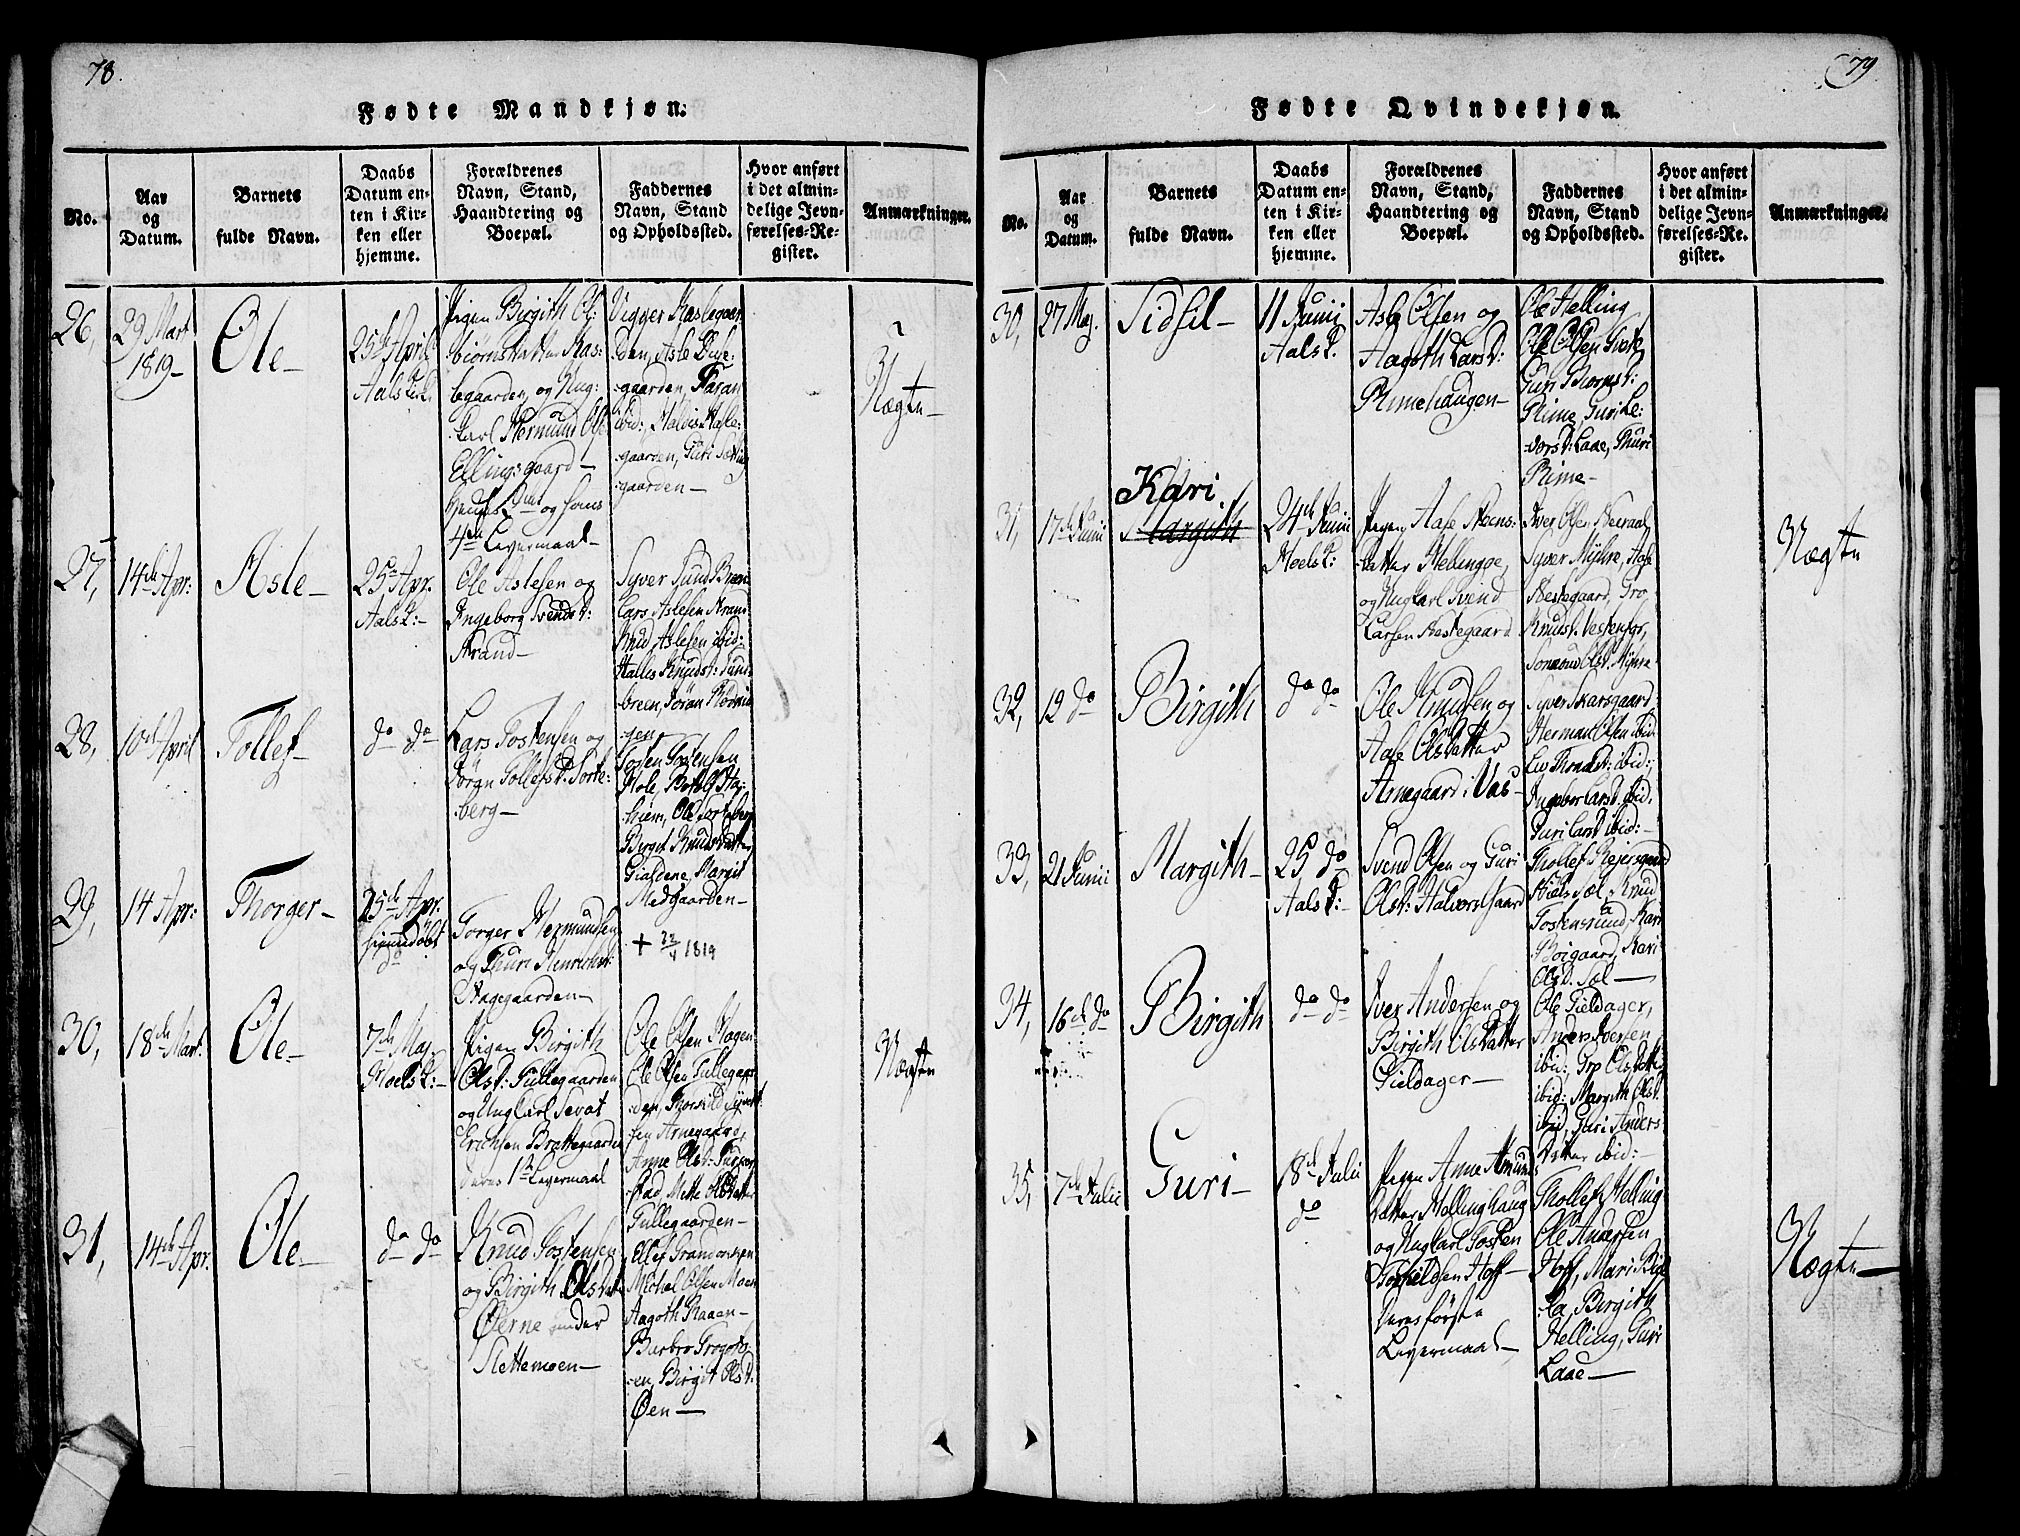 78.
Fødte Mandkjøn:
No.
Aar
og
Datum.
Barnets
fulde Navn.
Daabs
Datum en-
ten i Kir-
ken eller
hjemme.
Forældrenes
Navn, Stand,
Haandtering og
Boepæl.
Faddernes
Navn, Stand
og Opholdssted.
Hvor anført
i det almin-
delige Jevn-
førelses-Re-
gister.
Anmærkninger.
26,
29 Mart
1819-
Ole-
25de April
Aals K.
Pigen Birgith Ol:
biørnsdatter Has:
legaarden, og Ung:
karl Hermund Ols
Ellingsgaard-
hendes 2det og hans
4de Leyermaal-
Vigger Haslegaar
den, Asle
gaarden,
ibid:, Haldis Hasle:
gaarden, Guri
gaarden-
Nægte-
27,
14de Apr:
Asle-
25de Apr.
Aals K:-
Ole Aslesen og
Ingeborg Svends D:
Strand-
Syver Sund Breen
Lars Aslesen Strand
Knud Aslesen ibid:
Halles Knudsd: Sund
breen, Jøran
gen,
28,
10de April
Tollef-
do do
Lars Tostensen og
Jøran Tollefs D. Torte:
berg-
Tosten Tostensen
Hole, Botolf Haj:
hiem, Ole Torteberg
Birget Knudsdatter
Gialdene, Margit
Medgaarden-
29,
14 Apr:
Thorger-
25de Apr.
hjemmedøbt
do
Torger Hermundsen
og Thuri Henrichsd:
Hagegaarden-
+ 22/4 1819
30,
18de Mart:
Ole-
7de Maj.
Hoels K:-
Pigen Birgith
Olsd: Tullegaarden
og Ungkarl Sevat
Erichsen Brattegaarden
deres 1te Leyermaal
Ole Olsen Hagen:
Ole Olsen Tullegaar
den, Thorkild Syvert
sen Arnegaard,
Anne Olsd:
stad, Mette Olsdatter
Tullegaarden-
Nægten
31,
14de Apr:
Ole-
do do
Knud Tostensen
og Birgith Olsdat
Øerne under
Slettemoen-
Ellef
Michel Olsen Moen
Aagoth Raaen-
Barbro
en, Birgit Olsd:
Øen-
79
Fødte Qvindekjøn.
No.
Aar
og
Datum.
Barnets
fulde Navn.
Daabs
Datum en-
ten i Kir-
ken eller
hjemme.
Forældrenes
Navn, Stand,
Haandtering og
Boepæl.
Faddernes
Navn, Stand
og Opholdssted.
Hvor anført
i det almin-
delige Jevn-
førelses-Re-
gister.
Anmærkninger.
30,
27 Maj.
Sidsel-
11 Junii
Aals K.
Asle Olsen og
Aagoth Lars D:
Rimehaugen-
Ole Helling
Ole Olsen
Guri Biørnsd:
Rime, Guri Le:
dors D: Laae, Thuri
Rime-
31,
17de Junii
Kari
Margith
24de Junii
Hoels K:
Pigen Aase Steens:
datter Hellingøe,
og Ungkarl Svend
Larsen Nestegaard
Iver Olsen
Syver Myhre, Aase
Nestegaard, Gro
Knudsd: Vestenfor,
Olsd: Myhre-
Nægten
32,
12 do
Birgith
do do
Ole Knudsen og
Aase Olsdatter
Arnegaard i Vas-
Syver Skarsgaard
Herman Olsen ibid
Liv ibid:,
Ingebor Larsd. ibid.
Guri Larsd ibid:-
33,
21 Junii
Margith-
25 do
Aals K:-
Svend Olsen og Guri
Olsd: Halvorsgaard
Thollef Rejersgaard
Niels Søl, Knud
Tostensrund, Kari
Bøigaard, Kari
Ols D. Søl-
34,
16de do
Birgith
do do
Iver Andersen og
Birgith Olsdatter
Gieldager-
Ole Gieldager,
Anders Iversen
ibid:, Gro Olsdatter
ibid: Margith Olsd:
ibid, Guri Anders:
datter ibid:-
35,
7de Julii
Guri-
18de Julii
do
Pigen Anne Amunds
datter Helling haug
og Ungkarl Tosten
Torkildsen Hoff-
deres første
Leyermaal-
Thollef Helling
Ole Andersen
Hoff, Mari
Birgith
Helling, Guri
Laae-
Nægten-